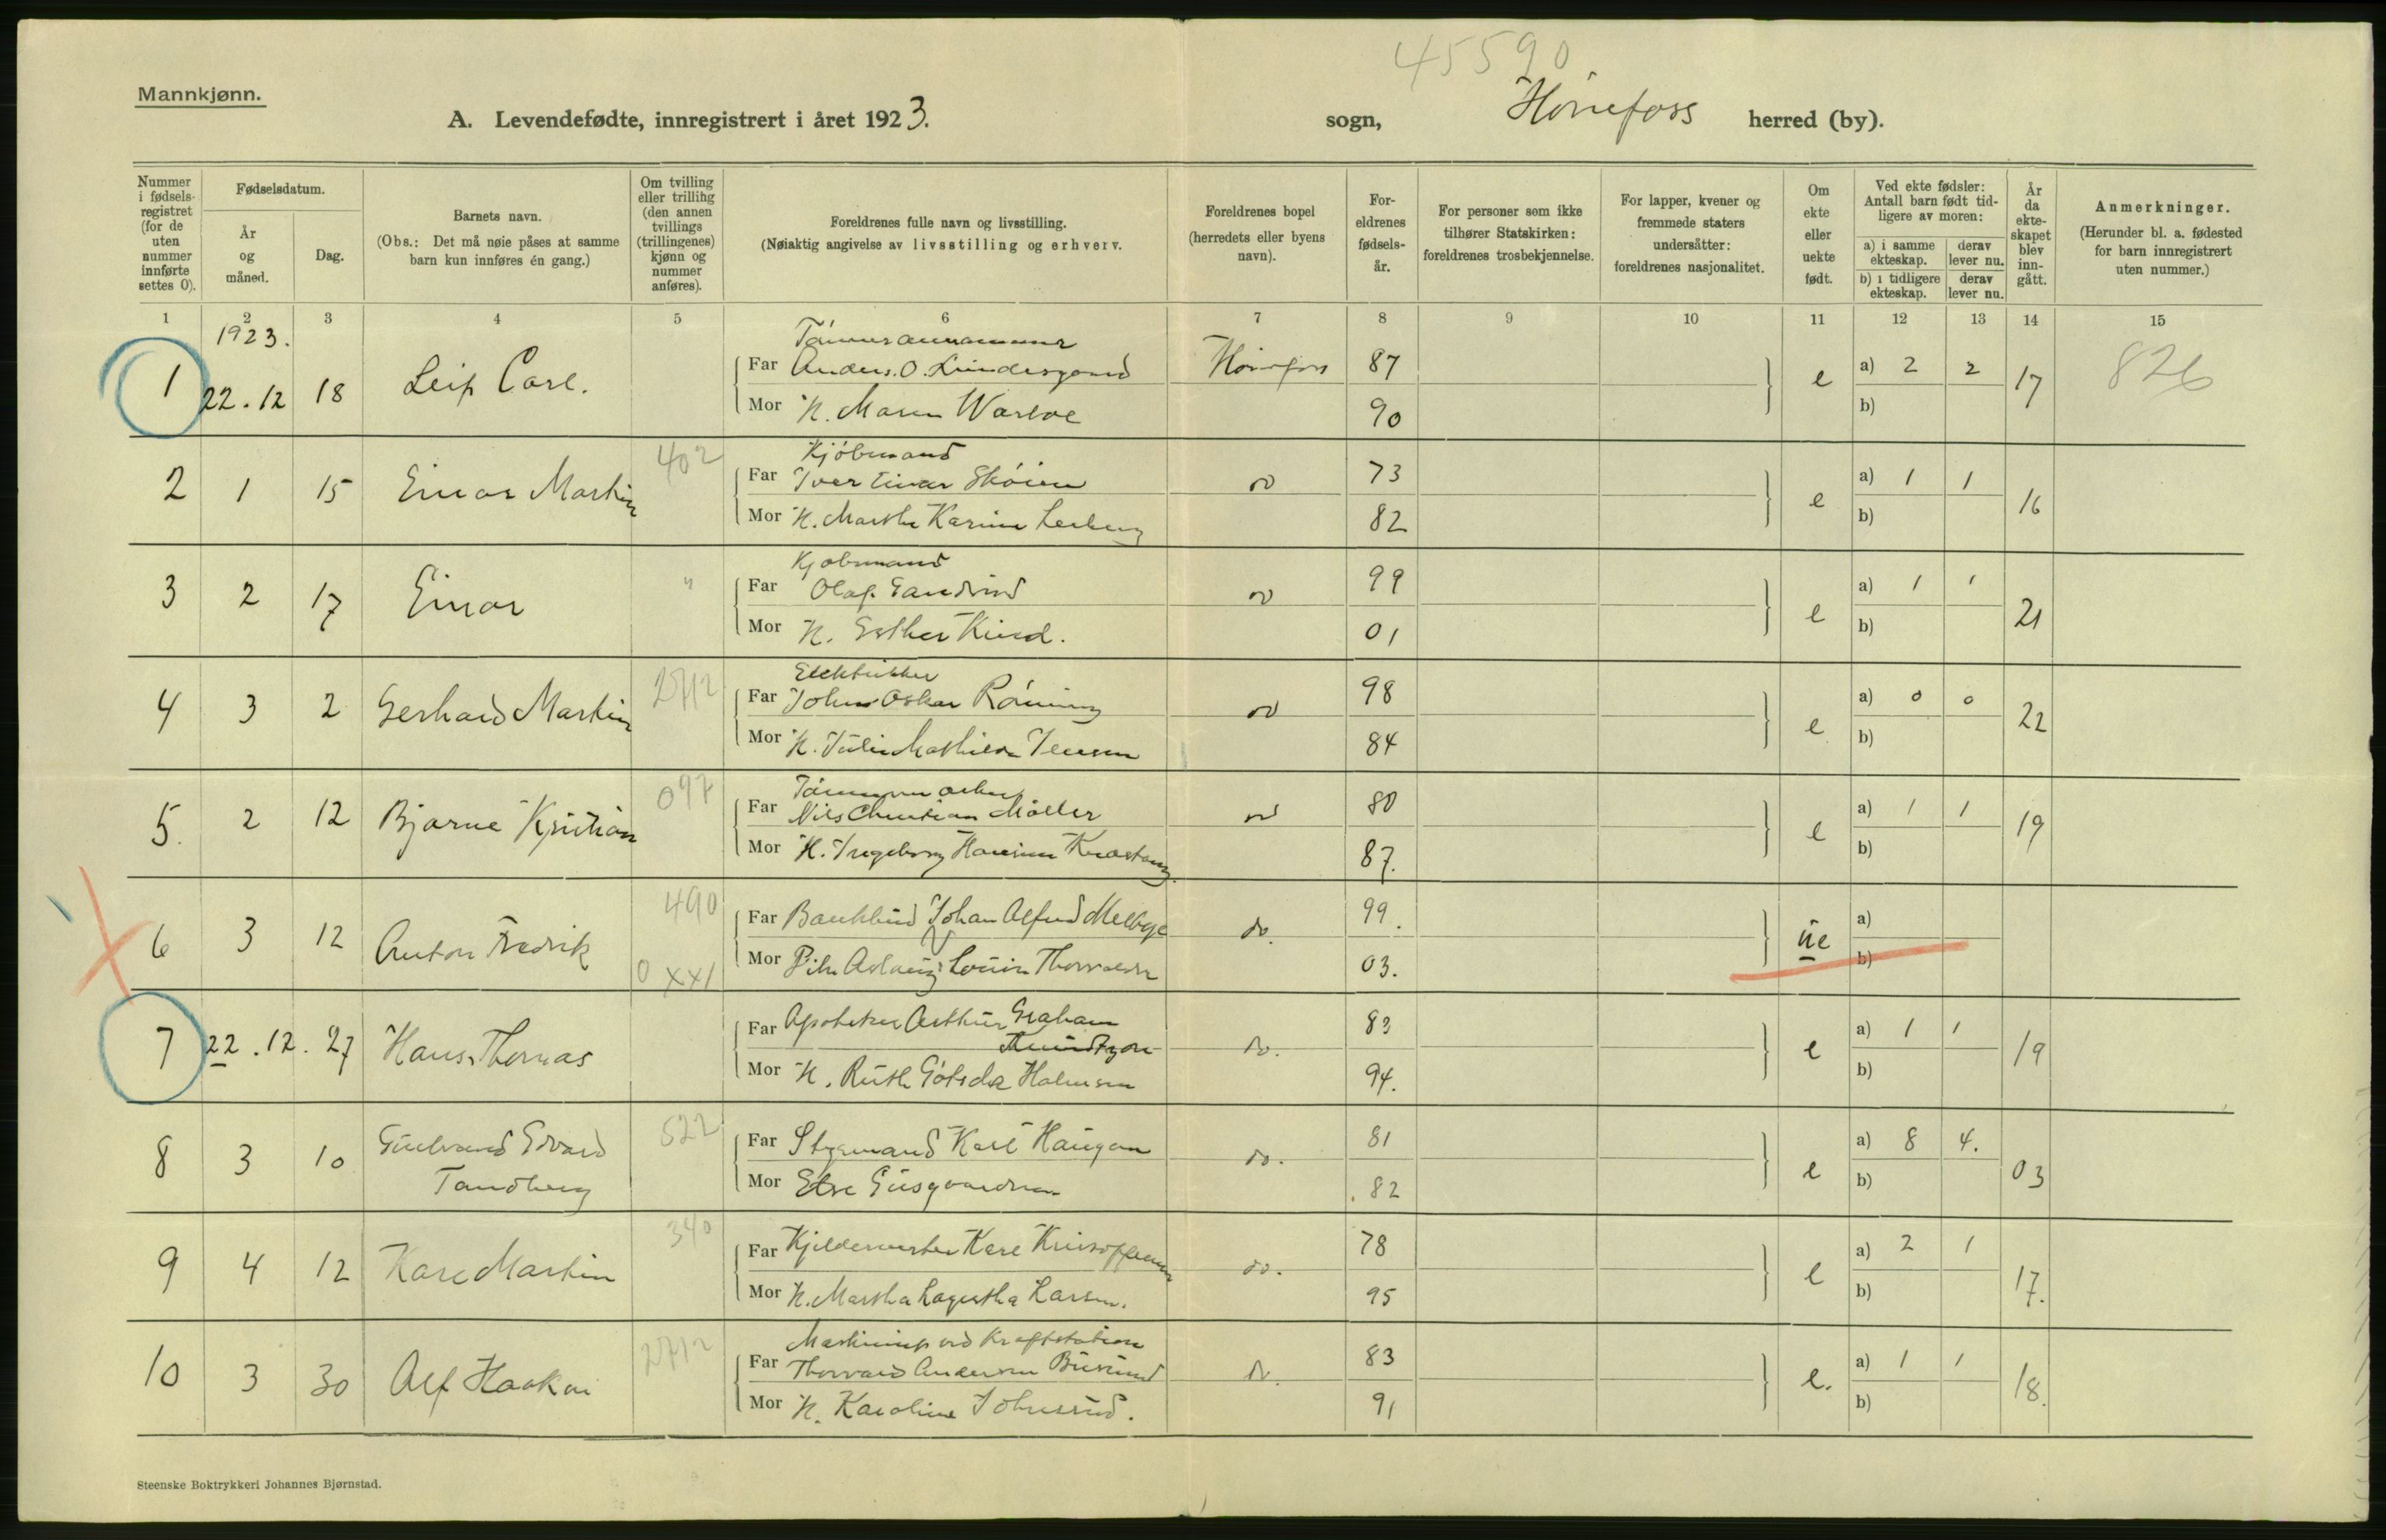 45590
Mannkjønn.
A. Levendefødte, innregistrert i året 1923. sogn, Hønefoss herred (by).
Nummer i fødsels-registret (for de uten nummer innførte settes 0).
Fødselsdatum.
År og måned.
Dag.
Barnets navn.
(Obs.: Det må nøie påses at samme barn kun innføres én gang.)
Om tvilling eller trilling (den annen tvillings (trillingenes) kjønn og nummer anføres).
Foreldrenes fulle navn og livsstilling.
(Nøiaktig angivelse av livsstilling og erhverv.
Foreldrenes bopel (herredets eller byens navn).
For-eldrenes fødsels-år.
For personer som ikke tilhører Statskirken: foreldrenes trosbekjennelse.
For lapper, kvener og fremmede staters undersåtter: foreldrenes nasjonalitet.
Om ekte eller uekte født.
Ved ekte fødsler: Antall barn født tid-ligere av moren:
a) i samme ekteskap. derav lever nu.
b) i tidligere ekteskap. derav lever nu.
År da ekte-skapet blev inn-gått.
Anmerkninger.
(Herunder bl. a. fødested for barn innregistrert uten nummer.)
1 2 3 4 5 6 7 8 9 10 11 12 13 14 15
1923.
1 22.12 18 Leif Carl.
Far Anders. O. Hønefoss 87 e a) 2 2 17 826
Mor H. Maren 90 b)
2 1 15 Einar Martin 402
Kjøbmand
Far Iver Einar Skøien do 73 e a) 1 1 16
Mor H. Marthe Karine 82 b)
3 2 17 Einar "
Kjøbmand
Far Olaf do 99 e a) 1 1 21
Mor H. Esther 01 b)
4 3 2 Gerhard Martin 2712
Elektriker
Far Johan Oskar Rønning do 98 e a) 0 0 22
Mor H. Julie Mathilde Jensen 84 b)
5. 2 12 Bjarne Kristian 097
Far Nils Christian Møller do 80 e a) 1 1 19
Mor H. Ingeborg 87. b)
6 3 12 Anton Fredrik 490
Far Johan Alfred Melbye do. 99. ue a)
0 XX1
Mor Pike Aslaug Lovise 03. b)
7 22.12. 27 Hans Thomas
Far Apoteker Arthur Graham do. 83 e a) 1 1 19
Mor H. Ruth 94. b)
8 3 10 Gulbrand Edvard 522
Tandberg
Far Karl Haugan do. 81 e a) 8 4. 03
Mor Else 82 b)
9 4 12 Kare Martin 340
Far Kjeldermester Kare do. 78 e a) 2 1 17.
Mor H. Martha Lagertha Larsen. 95 b)
10 3 30 Alf Haakon 2712
ved Kraftstation
Far Thorvald Andersen do. 83 e. a) 1 1 18.
Mor H. Karoline Johnsrud. 91 b)
Steenske Boktrykkeri Johannes Bjørnstad.